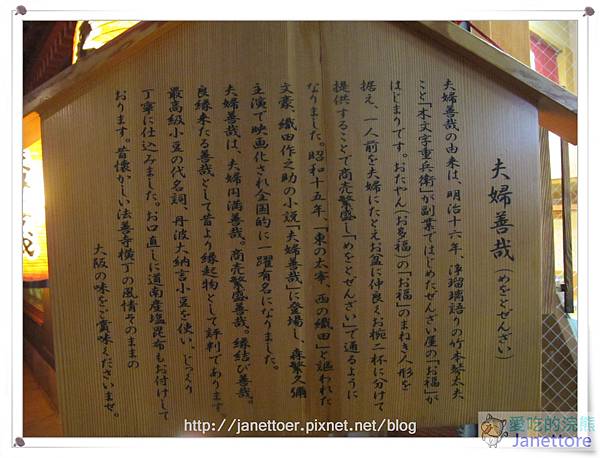 夫婦善哉（めをとぜんざい）
夫婦善哉の由来は、明治十六年、浄瑠璃語りの竹本琴太夫
こと「木文字重兵衛」が副業ではじめたぜんざい屋の「お福」が
はじまりです。おたやん（お多福）の「お福」のまねき人形を
据え、一人前を夫婦にたとえお盆に仲良くお椀二杯に分けて
提供することで商売繁盛し「めをとぜんざい」で通るように
なりました。昭和十五年、「東の太宰、西の織田」と謳われた
文豪、織田作之助の小説「夫婦善哉」に登場し、森繁久彌
主演で映画化され全国的に一躍有名になりました。
夫婦善哉は、夫婦円満善哉。商売繁盛善哉。縁結び善哉。
良縁来たる善哉として昔より縁起物として評判であります。
最高級小豆の代名詞、丹波大納言小豆を使い、じっくり
丁寧に仕込みました。お口直しに道南産塩昆布もお付けして
おります。昔懐かしい法善寺横丁の風情そのままの
大阪の味をご賞味くださいませ。
http://janettoer.pixnet.net/blog
愛吃的浣熊
Janettore